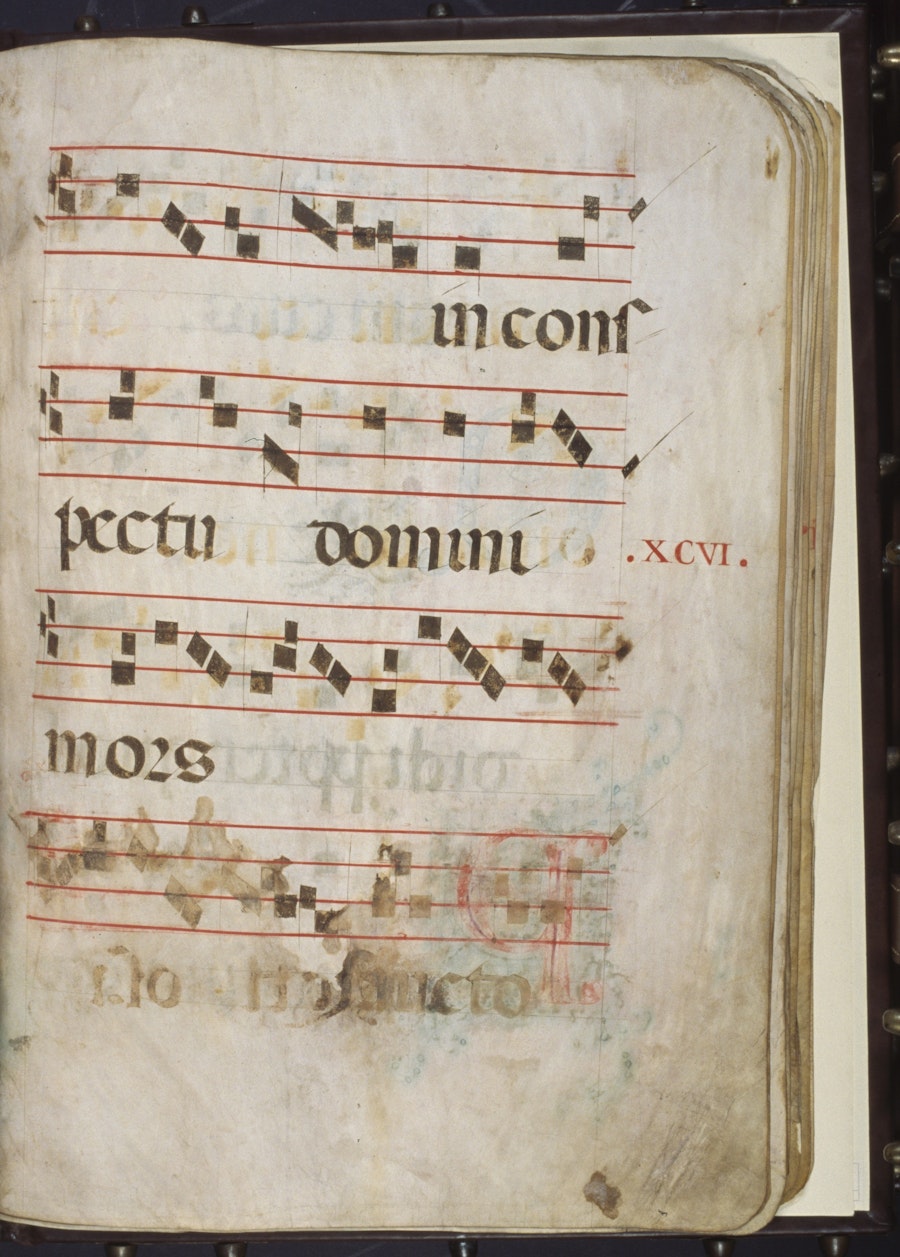 in cons
pectu domini
.XCVI.
mors
sancto